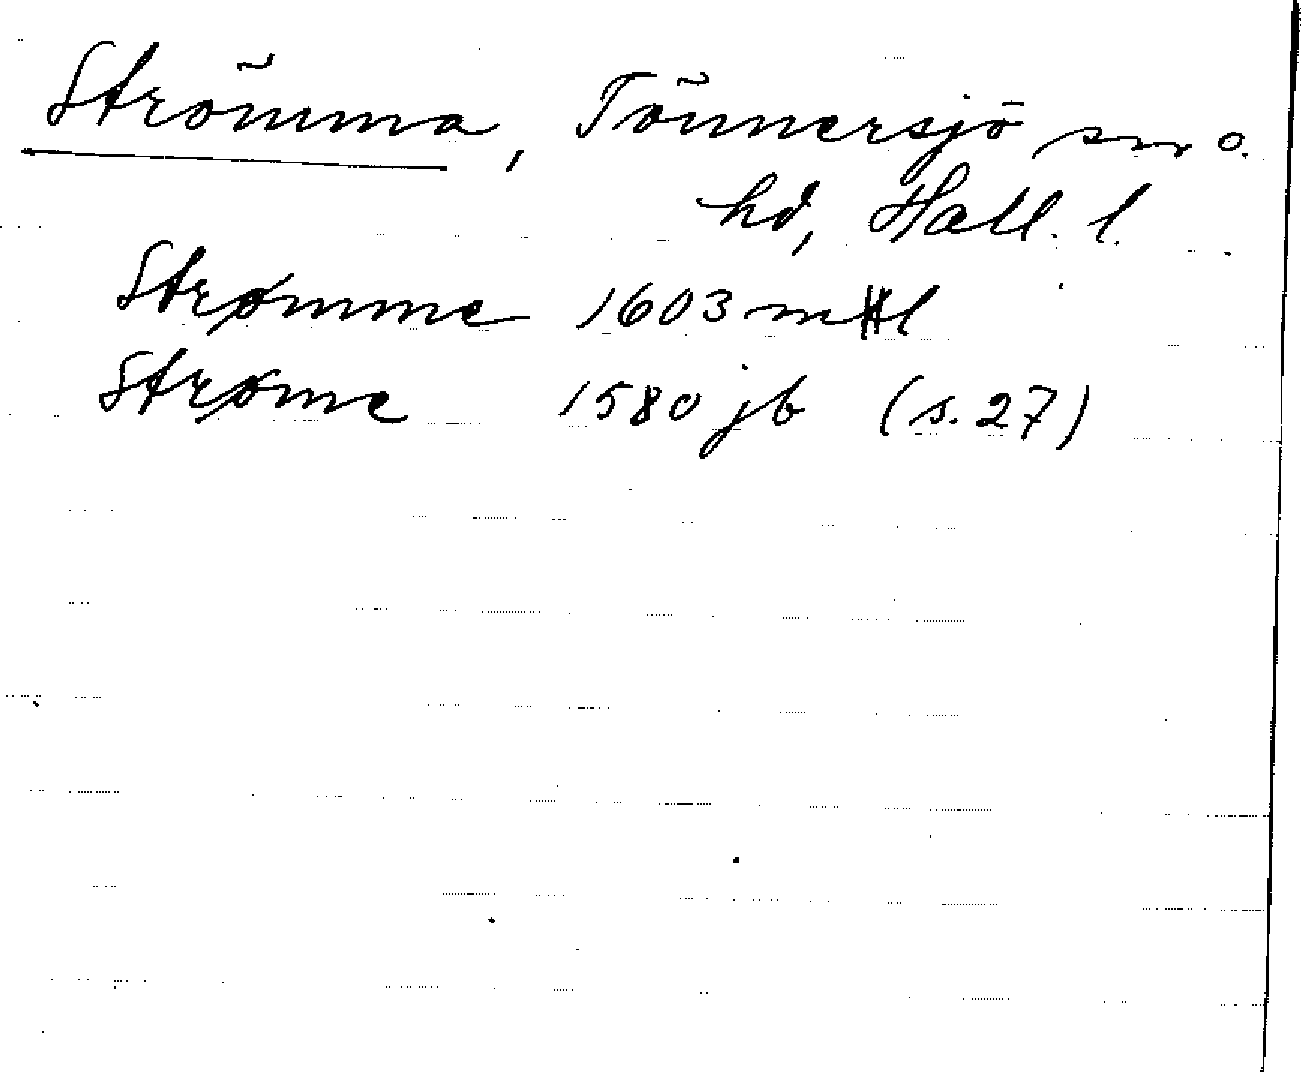 Strömma, Tönnersjö sn o.
hd, Hall. l.
Strømme 1603 mtl
Strøme 1580 jb (s. 27)